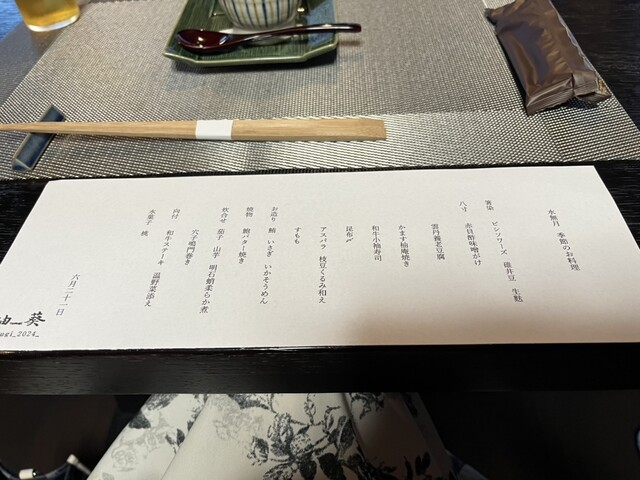 水無月　季節のお料理
箸染　ビシソワーズ　碓井豆　生麩
八寸　赤貝酢味噌がけ
雲丹養老豆腐
かます柚庵焼き
和牛小袖寿司
昆布〆
アスパラ　枝豆くるみ和え
すもも
お造り　鮪　いさぎ　いかそうめん
焼物　鮑バター焼き
炊合せ　茄子　山芋　明石蛸柔らか煮
穴子鳴門巻き
向付　和牛ステーキ　温野菜添え
水菓子　桃
六月二十一日
葵
_2024_